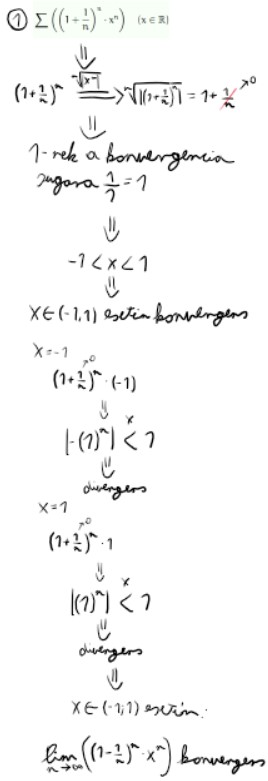 ① ∑ ((1 + 1/n)^n · x^n) (x ∈ ℝ)
⇓
(1+1/n)^n ⟹ ^n√|(1+1/n)^n| = 1 + 1/n →0
⇓
1-nek a konvergencia
sugara 1/1 = 1
⇓
-1 < x < 1
⇓
X ∈ (-1,1) esetén konvergens
X = -1
(1+1/n →0)^n · (-1)
⇓
|-(1)^n| < 1
⇓
divergens
X = 1
(1+1/n →0)^n · 1
⇓
|(1)^n| < 1
⇓
divergens
⇓
X ∈ (-1;1) esetén:
lim n→∞ ((1-1/n)^n · x^n) konvergens